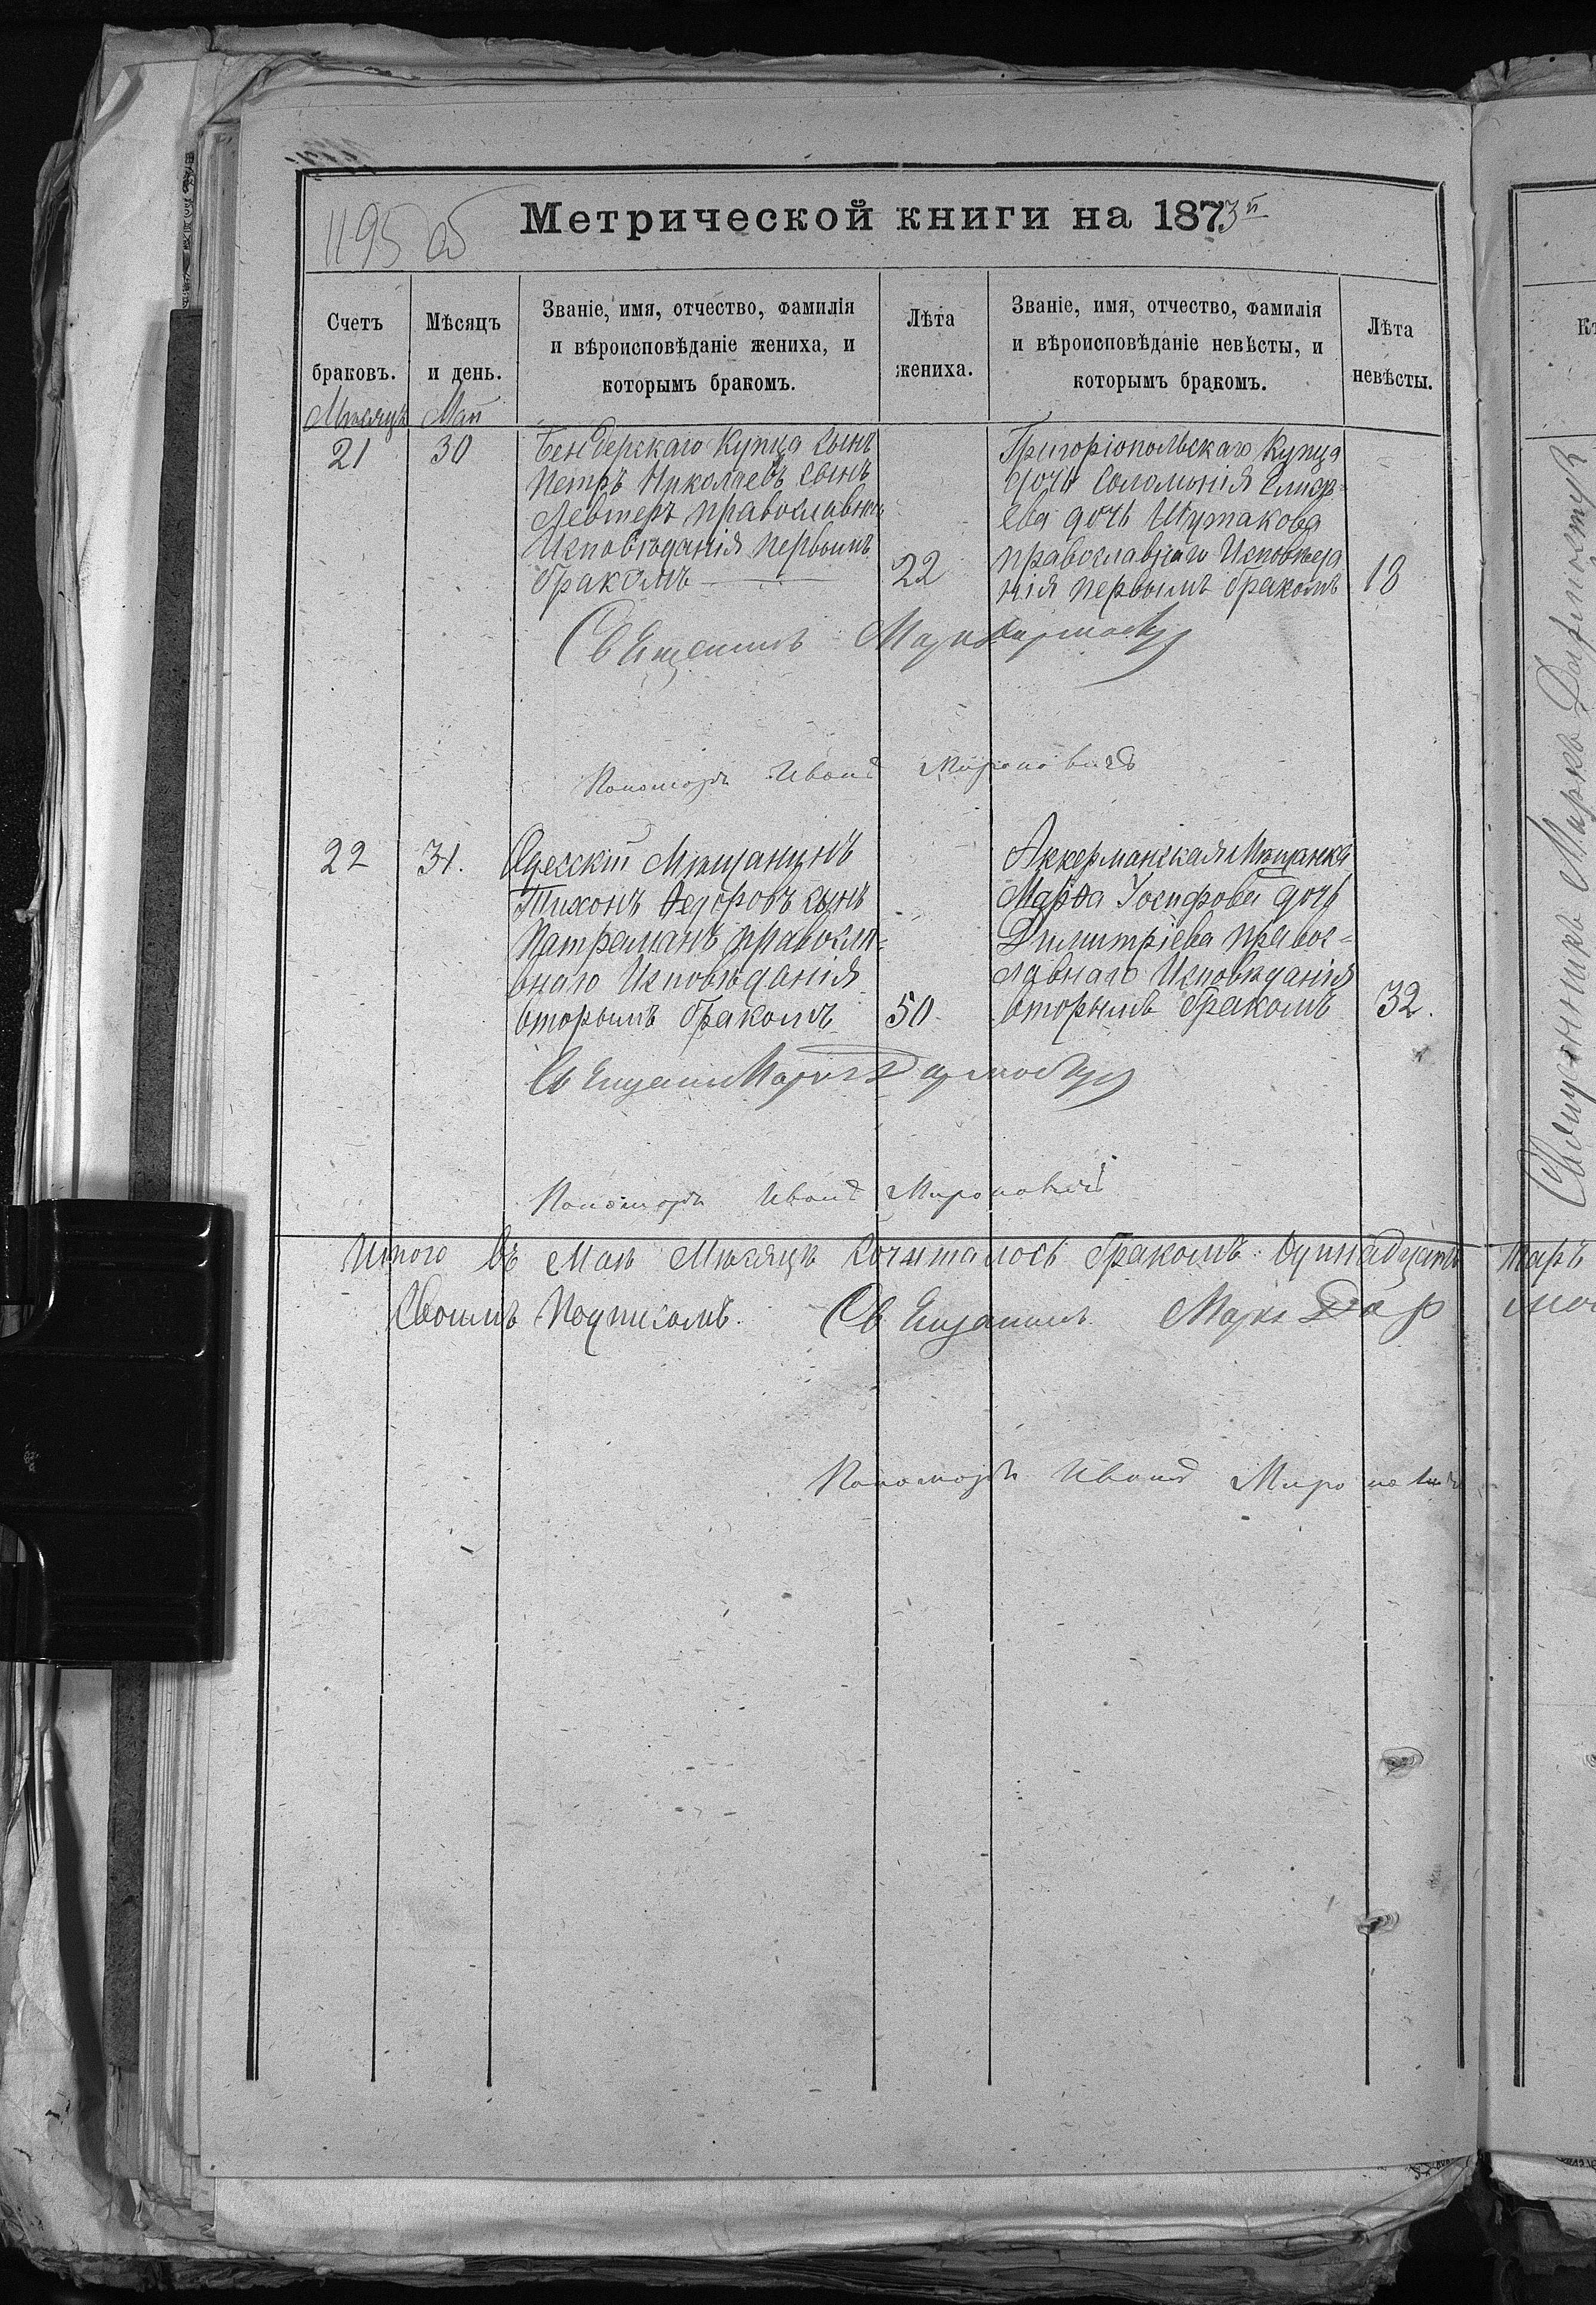 1195 об
Метрической книги на 1873й
Счетъ браковъ.
Мѣсяцъ и день.
Званіе, имя, отчество, фамилія
и вѣроисповѣданіе жениха, и
которымъ бракомъ.
Лѣта жениха.
Званіе, имя, отчество, фамилія
и вѣроисповѣданіе невѣсты, и
которымъ бракомъ.
Лѣта невѣсты.
Мѣсяцъ Май
21
30
Бендерскаго Купца сынъ
Петръ Николаевъ сынъ
Левтеръ православнаго
Исповѣданія первымъ
бракомъ
22
Григоріопольскаго Купца
дочь Соломонія
ева дочь Шутакова
православнаго Исповѣда
нія первымъ бракомъ
18
Священникъ Марк
Пономарь Иванъ Мироновичъ
22
31.
Одесскій Мѣщанинъ
Тихонъ Ѳедоровъ сынъ
православнаго Исповѣданія
вторымъ бракомъ
50
Аккерманская Мѣщанка
Марѳа Іосифова дочь
Димитріева правос=
лавнаго Исповѣданія
вторымъ бракомъ
32.
Священник Марк
Пономарь Иванъ Мироновичъ
Итого въ Маѣ Мѣсяцѣ бракомъ
Своимъ Подписомъ. Священникъ Марк Дар
Пономарь Иванъ Миронович
Священникъ Марко